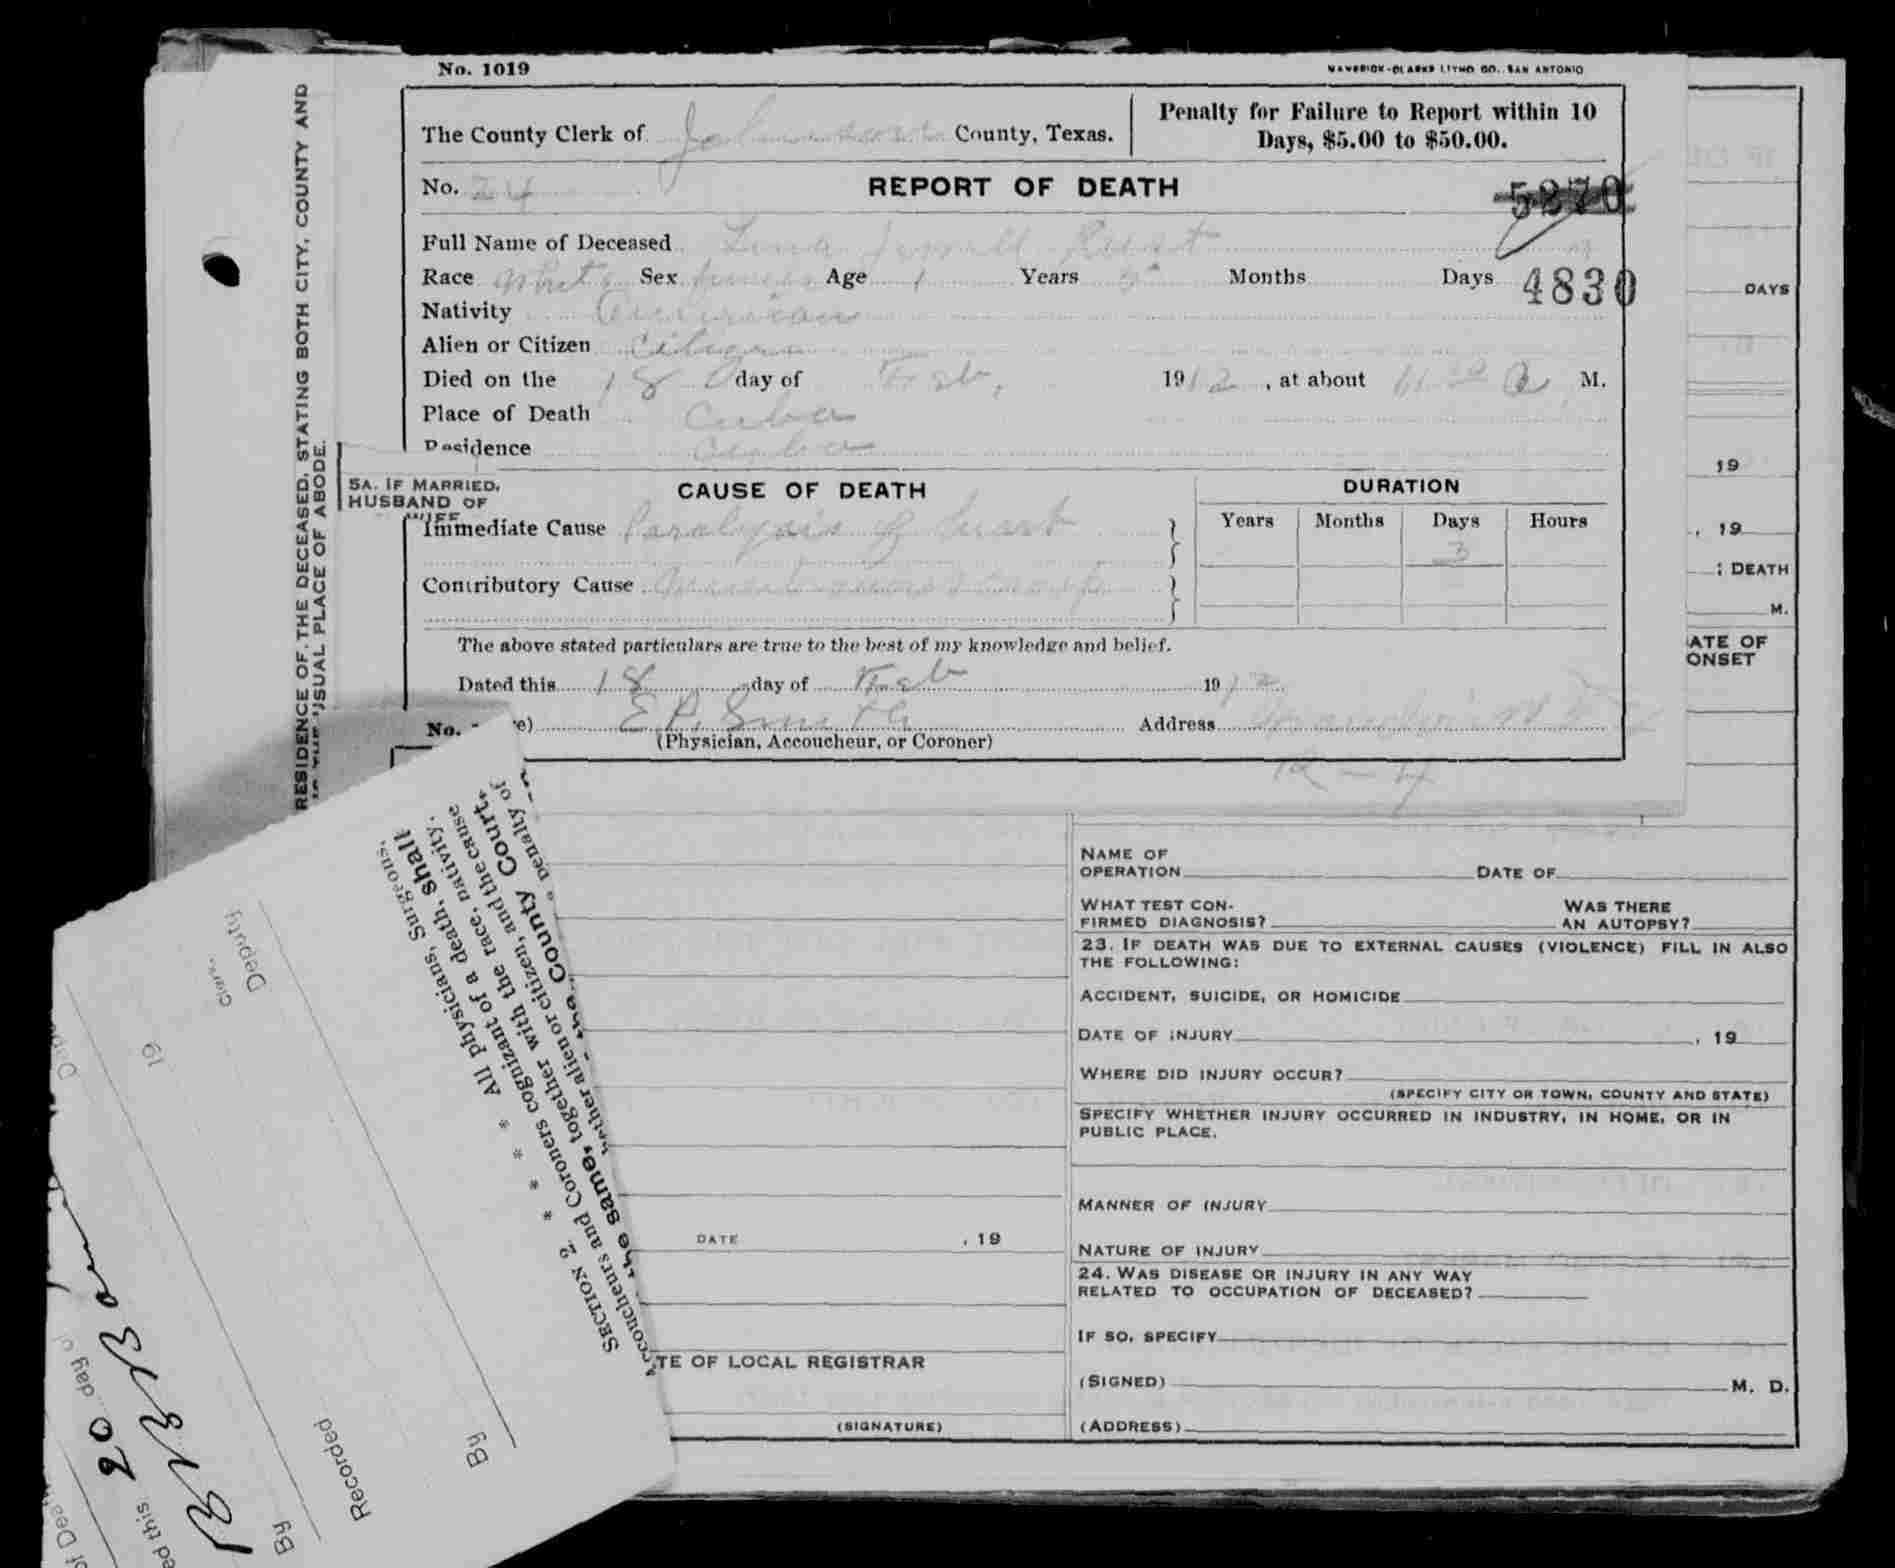 No. 1019 MAVERICK-CLARKE LITHO CO., SAN ANTONIO
The County Clerk of Johnson County, Texas.
Penalty for Failure to Report within 10
Days, $5.00 to $50.00.
No. 24 REPORT OF DEATH 5270
Full Name of Deceased Lena Jewell Rust
Race White Sex female Age 1 Years 5 Months Days 4830
Nativity American
Alien or Citizen Citizen
Died on the 18 day of Feb, 1912, at about 11 30 a M.
Place of Death Cuba
Residence Cuba
5A. IF MARRIED,
HUSBAND OF
WIFE
CAUSE OF DEATH DURATION
Years Months Days Hours
Immediate Cause Paralysis of heart 3
Contributory Cause Membranous Croup
The above stated particulars are true to the best of my knowledge and belief.
Dated this 18 day of Feb 1912
E P. Smith Address
(Physician, Accoucheur, or Coroner)
R - 4
No.
RESIDENCE OF THE DECEASED, STATING BOTH CITY, COUNTY AND
USUAL PLACE OF ABODE.
DAYS
19
, 19
: DEATH
M.
ATE OF
ONSET
NAME OF
OPERATION DATE OF
WHAT TEST CON-
FIRMED DIAGNOSIS? WAS THERE
AN AUTOPSY?
23. IF DEATH WAS DUE TO EXTERNAL CAUSES (VIOLENCE) FILL IN ALSO
THE FOLLOWING:
ACCIDENT, SUICIDE, OR HOMICIDE
DATE OF INJURY , 19
WHERE DID INJURY OCCUR?
(SPECIFY CITY OR TOWN, COUNTY AND STATE)
SPECIFY WHETHER INJURY OCCURRED IN INDUSTRY, IN HOME, OR IN
PUBLIC PLACE.
MANNER OF INJURY
NATURE OF INJURY
24. WAS DISEASE OR INJURY IN ANY WAY
RELATED TO OCCUPATION OF DECEASED?
IF SO, SPECIFY
(SIGNED) M. D.
(ADDRESS)
DATE , 19
TE OF LOCAL REGISTRAR
(SIGNATURE)
SECTION 2. * * * * All physicians, Surgeons,
Accoucheurs and Coroners cognizant of a death, shall
the same, together with the race, nativity,
whether alien or citizen, and the cause
the County Court,
penalty of
Clerk.
Deputy
19
By
Recorded
By
20 day of
ed this
of Death